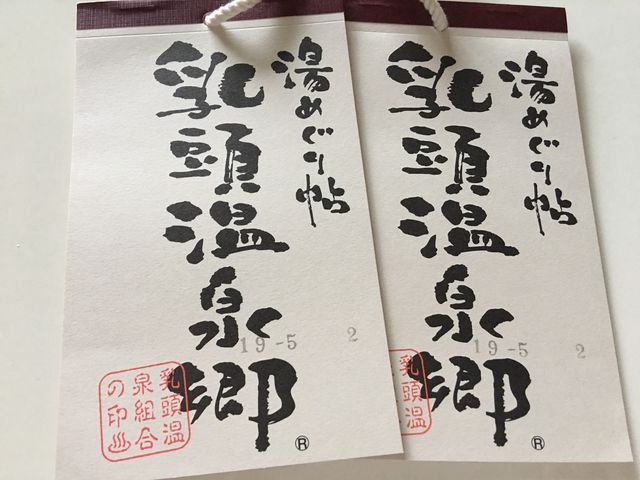 湯めぐり帖
乳頭温泉郷
®
19-5 2
乳頭温
泉組合
の印♨
湯めぐり帖
乳頭温泉郷
®
19-5 2
乳頭温